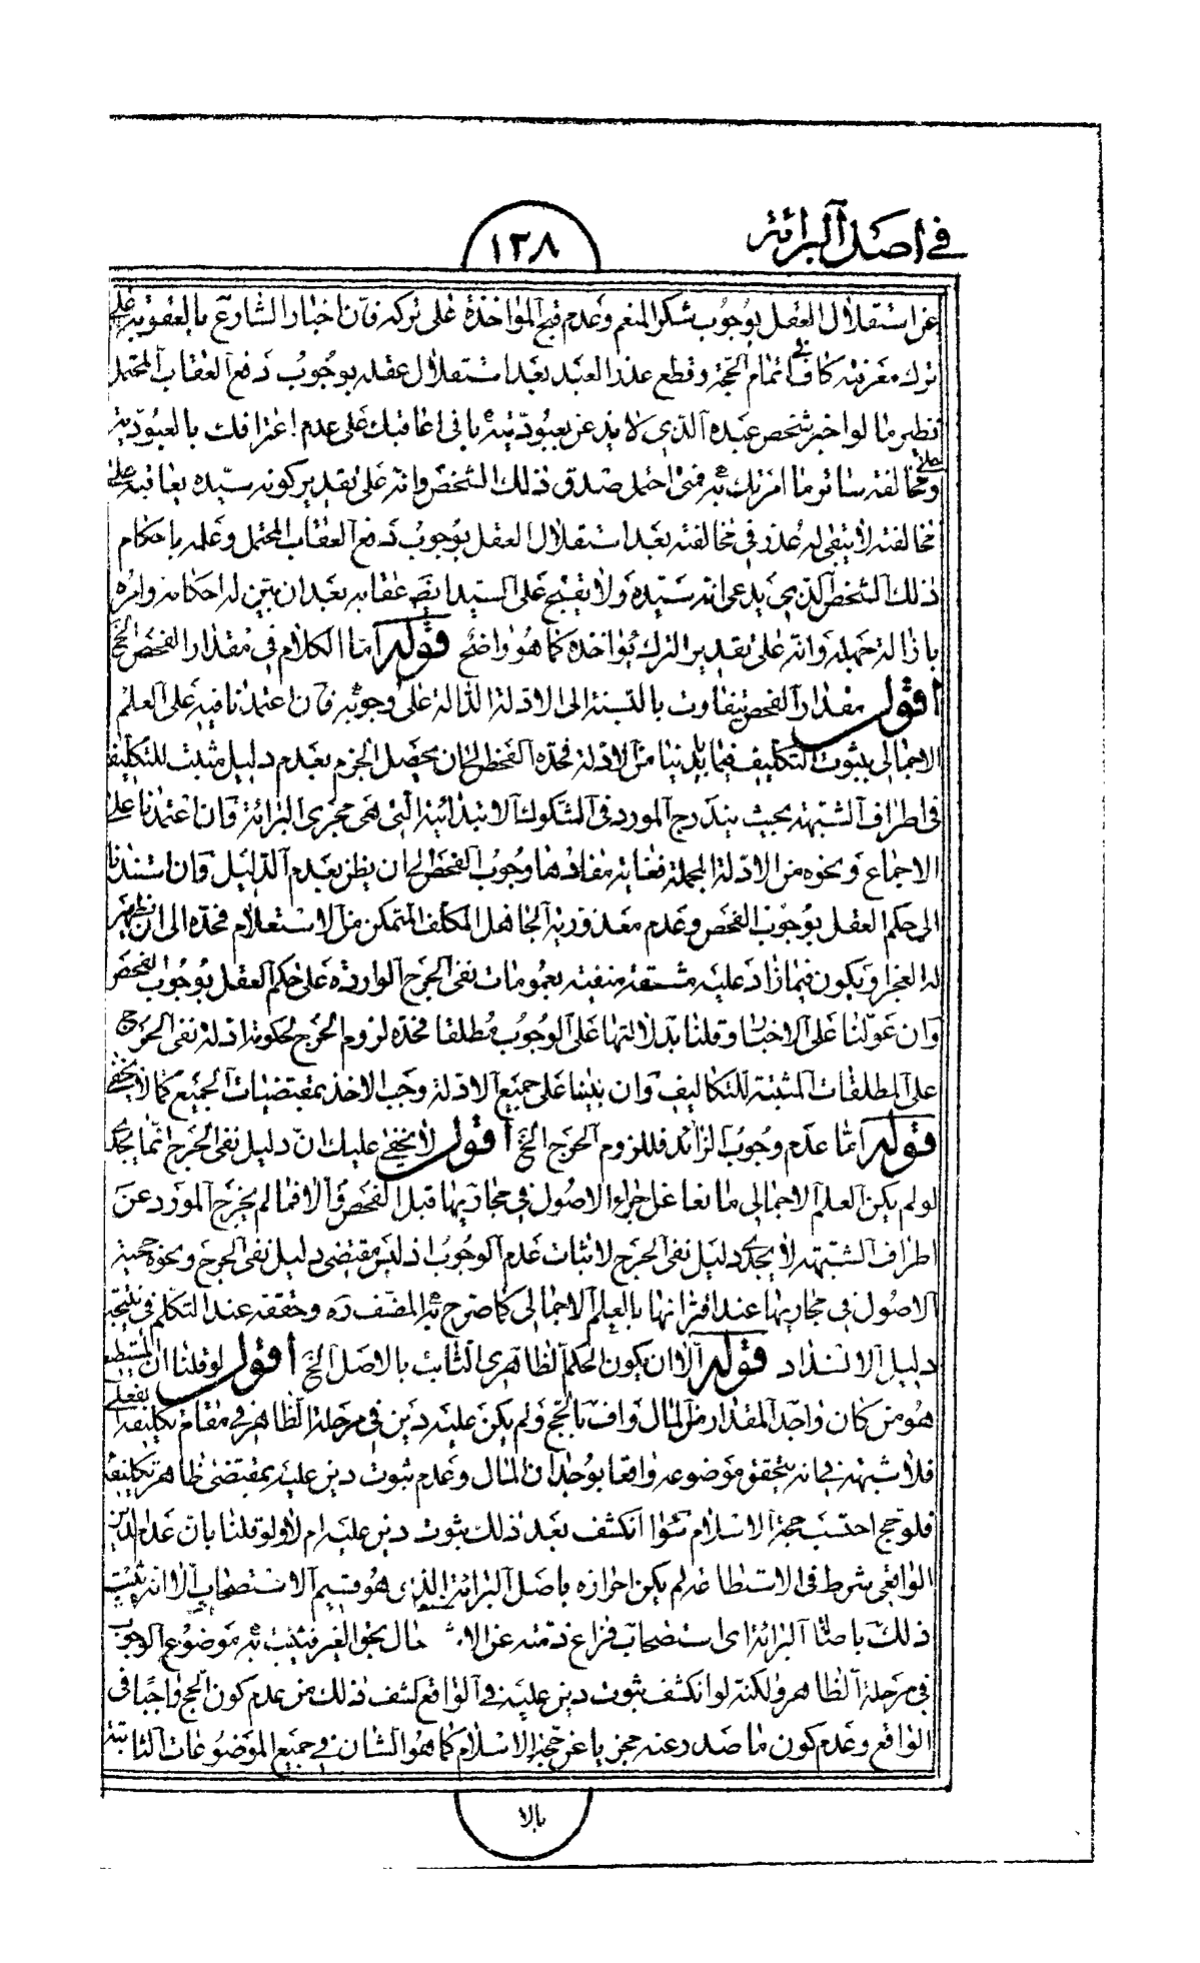 في اصل البرائة
١٢٨
عن استقلال العقل بوجوب شكر المنعم وعدم قبح المؤاخذة على تركه فان اخبار الشارع بالعقوبة على
ترك معرفته كاف في اتمام الحجة وقطع عذر العبد بعد استقلال عقله بوجوب دفع العقاب المحتمل
نظير ما لو اخبر شخص عبده الذي لا يذعن بعبوديته باني اعاقبك على عدم اعترافك بالعبودية
وعلى مخالفته سائر ما امرتك به فمتى احتمل صدق ذلك الشخص وانه على تقدير كونه سيده يعاقبه على
مخالفته لا يبقى له عذر في مخالفته بعد استقلال العقل بوجوب دفع العقاب المحتمل وعلمه باحكام
ذلك الشخص الذي يدعى انه سيده ولا يقبح على السيد ايضا عقابه بعد ان بين له احكامه وامره
بازالة جهله وانه على تقدير الترك يؤاخذه كما هو واضح قوله اما الكلام في مقدار الفحص الخ
اقول مقدار الفحص يتفاوت بالنسبة الى الادلة الدالة على وجوبه فان اعتمدنا فيه على العلم
الاجمالي بثبوت التكليف فيما بايدينا من الادلة فحده الفحص الى ان يحصل الجزم بعدم دليل مثبت للتكليف
في اطراف الشبهة بحيث يندرج المورد في الشكوك الابتدائية التي هي مجرى البرائة فان اعتمدنا على
الاجماع ونحوه من الادلة المجملة فغاية مفادها وجوب الفحص الى ان يظن بعدم الدليل وان استندنا
الى حكم العقل بوجوب الفحص وعدم معذورية الجاهل المكلف المتمكن من الاستعلام فحده الى ان يظهر
له العجز او يكون فيما زاد عليه مشقة منفية بعمومات نفى الحرج الواردة على حكم العقل بوجوب الفحص
وان عولنا على الاخبار وقلنا بدلالتها على الوجوب مطلقا فحده لزوم الحرج لحكومة ادلة نفى الحرج
على المطلقات المثبتة للتكاليف وان بنينا على جميع الادلة وجب الاخذ بمقتضيات الجميع كما لا يخفى
قوله اما عدم وجوب الزائد فللزوم الحرج الخ اقول لا يخفى عليك ان دليل نفى الحرج انما يجدى
لو لم يكن العلم الاجمالي مانعا عن اجراء الاصول في مجاريها قبل الفحص والا فما لم يخرج المورد عن
اطراف الشبهة لا يجدى دليل نفى الحرج لاثبات عدم الوجوب اذ ليس مقتضى دليل نفى الحرج ونحوه حجية
الاصول في مجاريها عند اقترانها بالعلم الاجمالي كما صرح به المصنف ره وحققه عند التكلم في نتيجة
دليل الانسداد قوله الا ان يكون الحكم الظاهري الثابت بالاصل الخ اقول لو قلنا ان المستطيع
هو من كان واجد المقدار من المال واف بالحج ولم يكن عليه دين في مرحلة الظاهر في مقام تكليفه بفعلى
فلا شبهة في انه يتحقق موضوعه واقعا بوجدان المال وعدم ثبوت دين عليه بمقتضى ظاهر تكليفه
فلو حج احتسب حجة الاسلام سواء انكشف بعد ذلك ثبوت دين عليه ام لا ولو قلنا بان عدم الدين
الواقعي شرط في الاستطاعة لم يكن احرازه باصل البرائة الذي هو قسيم الاستصحاب الا انه يثبت
ذلك باصالة البرائة اى استصحاب فراغ ذمته عن الا حال بحق الغير فيثبت به موضوع الوجوب
في مرحلة الظاهر ولكنه لو انكشف ثبوت دين عليه في الواقع كشف ذلك من عدم كون الحج واجبا في
الواقع وعدم كون ما صدر عنه مجزيا عن حجة الاسلام كما هو الشان في جميع الموضوعات الثابتة
بالا